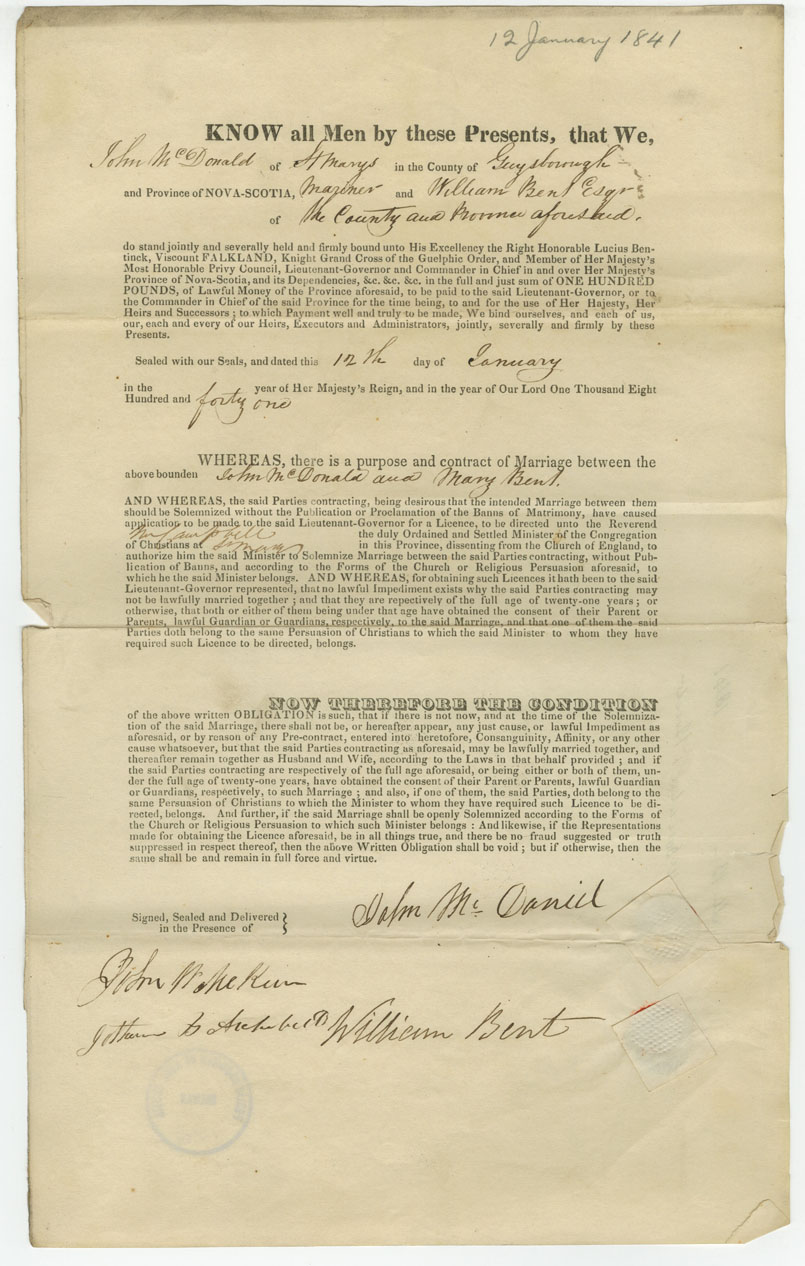 12 January 1841
KNOW all Men by these Presents, that We,
John McDonald of St Marys in the County of Guysborough
and Province of NOVA-SCOTIA, Mariner and William Bent Esqr
of the County and Province aforesaid.
do stand jointly and severally held and firmly bound unto His Excellency the Right Honorable Lucius Ben-
tinck, Viscount FALKLAND, Knight Grand Cross of the Guelphic Order, and Member of Her Majesty's
Most Honorable Privy Council, Lieutenant-Governor and Commander in Chief in and over Her Majesty's
Province of Nova-Scotia, and its Dependencies, &c. &c. &c. in the full and just sum of ONE HUNDRED
POUNDS, of Lawful Money of the Province aforesaid, to be paid to the said Lieutenant-Governor, or to
the Commander in Chief of the said Province for the time being, to and for the use of Her Hajesty, Her
Heirs and Successors ; to which Payment well and truly to be made, We bind ourselves, and each of us,
our, each and every of our Heirs, Executors and Administrators, jointly, severally and firmly by these
Presents.
Sealed with our Seals, and dated this 12th day of January
in the year of Her Majesty's Reign, and in the year of Our Lord One Thousand Eight
Hundred and forty one
WHEREAS, there is a purpose and contract of Marriage between the
above bounden John McDonald and Mary Bent.
AND WHEREAS, the said Parties contracting, being desirous that the intended Marriage between them
should be Solemnized without the Publication or Proclamation of the Banns of Matrimony, have caused
application to be made to the said Lieutenant-Governor for a Licence, to be directed unto the Reverend
Mr Campbell the duly Ordained and Settled Minister of the Congregation
of Christians at St Marys in this Province, dissenting from the Church of England, to
authorize him the said Minister to Solemnize Marriage between the said Parties contracting, without Pub-
lication of Banns, and according to the Forms of the Church or Religious Persuasion aforesaid, to
which he the said Minister belongs. AND WHEREAS, for obtaining such Licences it hath been to the said
Lieutenant-Governor represented, that no lawful Impediment exists why the said Parties contracting may
not be lawfully married together ; and that they are repectively of the full age of twenty-one years ; or
otherwise, that both or either of them being under that age have obtained the consent of their Parent or
Parents, lawful Guardian or Guardians, respectively, to the said Marriage, and that one of them the said
Parties doth belong to the same Persuasion of Christians to which the said Minister to whom they have
required such Licence to be directed, belongs.
NOW THEREFORE THE CONDITION
of the above written OBLIGATION is such, that if there is not now, and at the time of the Solemniza-
tion of the said Marriage, there shall not be, or hereafter appear, any just cause, or lawful Impediment as
aforesaid, or by reason of any Pre-contract, entered into heretofore, Consanguinity, Affinity, or any other
cause whatsoever, but that the said Parties contracting as aforesaid, may be lawfully married together, and
thereafter remain together as Husband and Wife, according to the Laws in that behalf provided ; and if
the said Parties contracting are respectively of the full age aforesaid, or being either or both of them, un-
der the full age of twenty-one years, have obtained the consent of their Parent or Parents, lawful Guardian
or Guardians, respectively, to such Marriage ; and also, if one of them, the said Parties, doth belong to the
same Persuasion of Christians to which the Minister to whom they have required such Licence to be di-
rected, belongs. And further, if the said Marriage shall be openly Solemnized according to the Forms of
the Church or Religious Persuasion to which such Minister belongs : And likewise, if the Representations
made for obtaining the Licence aforesaid, be in all things true, and there be no fraud suggested or truth
suppressed in respect thereof, then the above Written Obligation shall be void ; but if otherwise, then the
same shall be and remain in full force and virtue.
Signed, Sealed and Delivered
in the Presence of
John Mc Daniel
John W McKeen
Jotham B Archibald William Bent